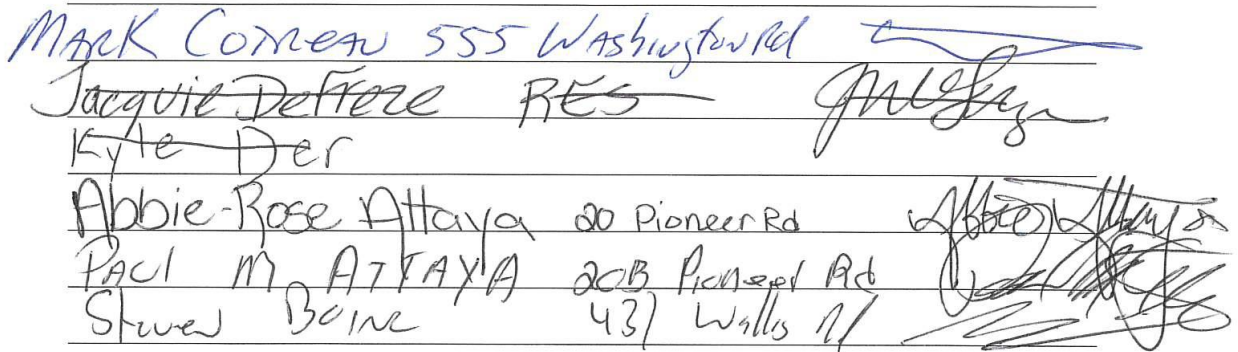 MARK COMEAU 555 Washington Rd
Jacquie DeFreze RES
Kyle Der
Abbie-Rose Attaya 20 Pioneer Rd
PAUL M ATTAYA 20B Pioneer Rd
Steven Borne 431 Wallis Rd